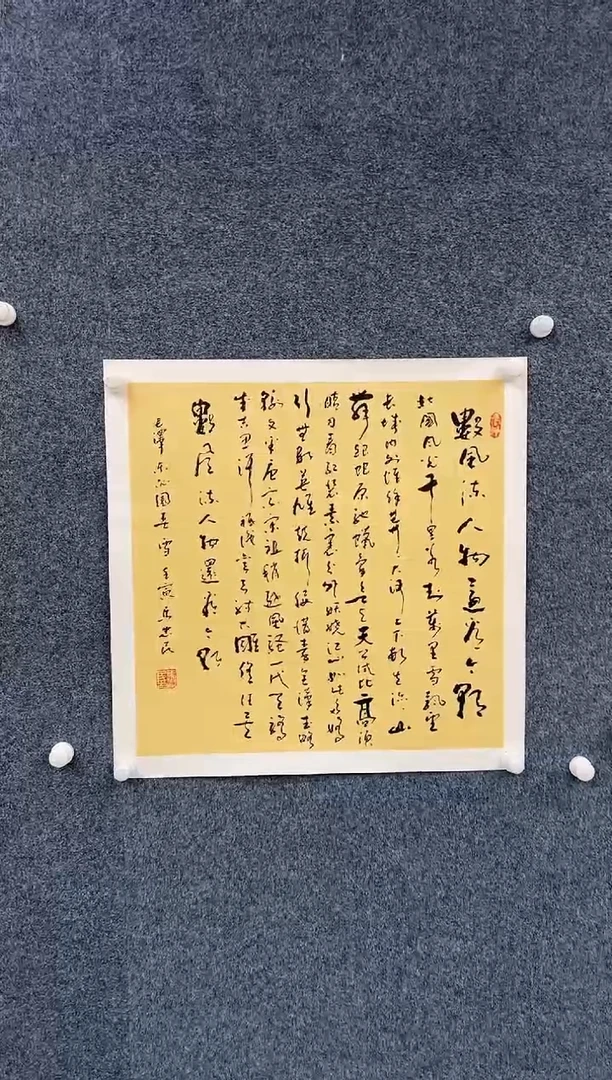 數風流人物還看今朝
北國風光千里冰封萬里雪飄望
长城内外惟餘莽莽大河上下頓失滔滔山
舞銀蛇原馳蠟象欲与天公试比高須
晴日看红裝素裹分外妖娆江山如此多嬌
引無數英雄競折腰惜秦皇漢武略
输文采唐宗宋祖稍遜風骚一代天驕
成吉思汗祗识弯弓射大雕俱往矣
數风流人物還看今朝
毛澤东沁園春雪壬寅